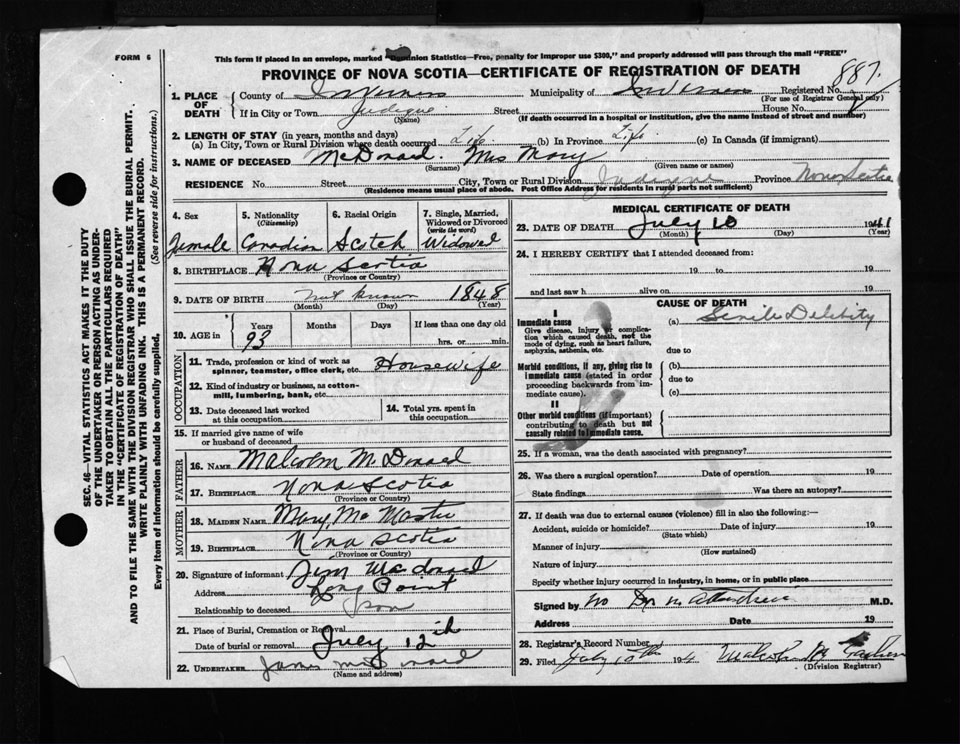 FORM 6
This form if placed in an envelope, marked "Dominion Statistics—Free, penalty for improper use $300," and properly addressed will pass through the mail "FREE"
PROVINCE OF NOVA SCOTIA—CERTIFICATE OF REGISTRATION OF DEATH
887.
1. PLACE OF DEATH
County of Inverness Municipality of Inverness Registered No.
(For use of Registrar General only)
If in City or Town Judique Street House No.
(Name) (If death occurred in a hospital or institution, give the name instead of street and number)
2. LENGTH OF STAY (in years, months and days)
(a) In City, Town or Rural Division where death occurred Life (b) In Province Life (c) In Canada (if immigrant)
3. NAME OF DECEASED McDonald. Mrs Mary
(Surname) (Given name or names)
RESIDENCE No. Street City, Town or Rural Division Judique Province Nova Scotia
(Residence means usual place of abode. Post Office Address for residents in rural parts not sufficient)
4. Sex
Female
5. Nationality
(Citizenship)
Canadian
6. Racial Origin
Scotch
7. Single, Married, Widowed or Divorced
(write the word)
Widowed
8. BIRTHPLACE Nova Scotia
(Province or Country)
9. DATE OF BIRTH not known 1848
(Month) (Day) (Year)
10. AGE in Years 93 Months Days If less than one day old
hrs. or min.
OCCUPATION
11. Trade, profession or kind of work as spinner, teamster, office clerk, etc. Housewife
12. Kind of industry or business, as cotton-mill, lumbering, bank, etc.
13. Date deceased last worked at this occupation
14. Total yrs. spent in this occupation
15. If married give name of wife or husband of deceased
FATHER
16. NAME Malcolm McDonald
17. BIRTHPLACE Nova Scotia
(Province or Country)
MOTHER
18. MAIDEN NAME Mary McMaster
19. BIRTHPLACE Nova Scotia
(Province or Country)
20. Signature of informant Jim McDonald
Address Long Point
Relationship to deceased Son
21. Place of Burial, Cremation or Removal
Date of burial or removal July 12th
22. UNDERTAKER James McDonald
(Name and address)
MEDICAL CERTIFICATE OF DEATH
23. DATE OF DEATH July 10 1941
(Month) (Day) (Year)
24. I HEREBY CERTIFY that I attended deceased from:
19 to 19
and last saw h alive on 19
CAUSE OF DEATH
I
Immediate cause
Give disease, injury or complication which caused death, not the mode of dying, such as heart failure, asphyxia, asthenia, etc.
(a) Senile Debility
due to
Morbid conditions, if any, giving rise to immediate cause (stated in order proceeding backwards from immediate cause).
(b)
due to
(c)
II
Other morbid conditions (if important) contributing to death but not causally related to immediate cause.
25. If a woman, was the death associated with pregnancy?
26. Was there a surgical operation? Date of operation 19
State findings Was there an autopsy?
27. If death was due to external causes (violence) fill in also the following:—
Accident, suicide or homicide? Date of injury 19
(State which)
Manner of injury
(How sustained)
Nature of injury
Specify whether injury occurred in industry, in home, or in public place
Signed by no Dr in Attendance M.D.
Address Date 19
28. Registrar's Record Number
29. Filed July 10th 194 Malcolm
(Division Registrar)
SEC. 46—VITAL STATISTICS ACT MAKES IT THE DUTY
OF THE UNDERTAKER OR PERSON ACTING AS UNDER-
TAKER TO OBTAIN ALL THE PARTICULARS REQUIRED
IN THE "CERTIFICATE OF REGISTRATION OF DEATH"
AND TO FILE THE SAME WITH THE DIVISION REGISTRAR WHO SHALL ISSUE THE BURIAL PERMIT.
WRITE PLAINLY WITH UNFADING INK. THIS IS A PERMANENT RECORD.
Every item of information should be carefully supplied.
(See reverse side for instructions.)